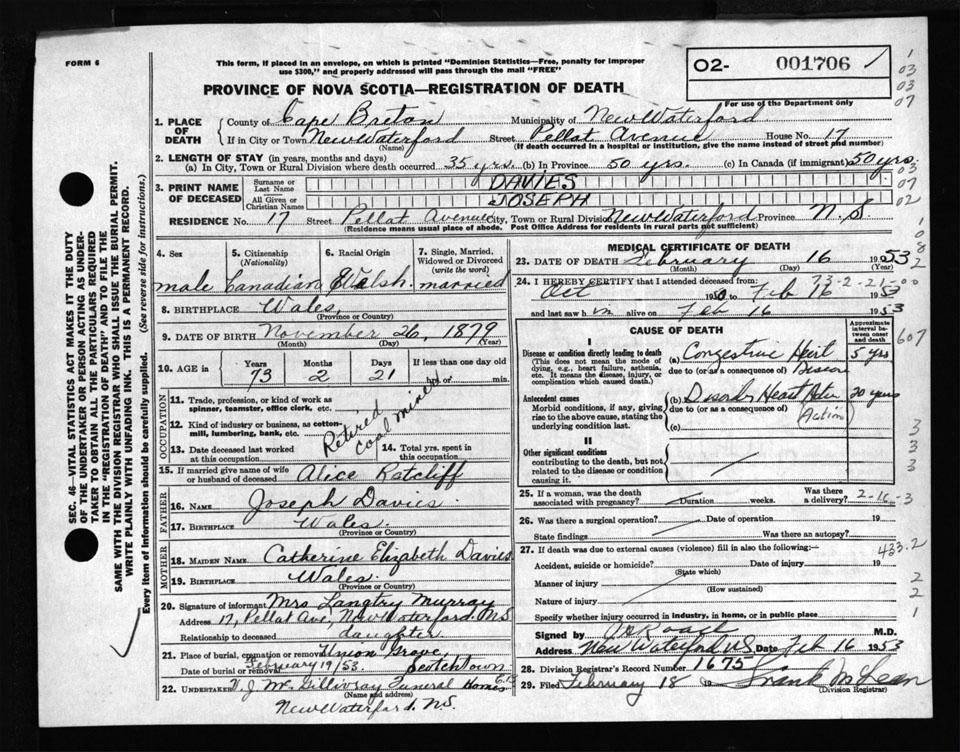 FORM 6
This form, if placed in an envelope, on which is printed "Dominion Statistics—Free, penalty for improper
use $300," and properly addressed will pass through the mail "FREE"
O2- 001706
For use of the Department only
PROVINCE OF NOVA SCOTIA—REGISTRATION OF DEATH
1. PLACE OF DEATH
County of Cape Breton Municipality of New Waterford
If in City or Town New Waterford Street Pellat Avenue House No. 17
(Name) (If death occurred in a hospital or institution, give the name instead of street and number)
2. LENGTH OF STAY (in years, months and days)
(a) In City, Town or Rural Division where death occurred 35 yrs. (b) In Province 50 yrs. (c) In Canada (if immigrant) 50 yrs.
3. PRINT NAME OF DECEASED
Surname or Last Name DAVIES
All Given or Christian Names JOSEPH
RESIDENCE No. 17 Street Pellat Avenue City, Town or Rural Division New Waterford Province N.S.
(Residence means usual place of abode. Post Office Address for residents in rural parts not sufficient)
4. Sex
male
5. Citizenship (Nationality)
Canadian
6. Racial Origin
Welsh
7. Single, Married, Widowed or Divorced (write the word)
married
8. BIRTHPLACE Wales
(Province or Country)
9. DATE OF BIRTH November 26, 1879
(Month) (Day) (Year)
10. AGE in Years Months Days If less than one day old
73 2 21 hrs. or min.
OCCUPATION
11. Trade, profession, or kind of work as
spinner, teamster, office clerk, etc.
12. Kind of industry or business, as cotton-
mill, lumbering, bank, etc.
Retired coal miner
13. Date deceased last worked
at this occupation
14. Total yrs. spent in
this occupation
15. If married give name of wife
or husband of deceased Alice Ratcliff
FATHER
16. NAME Joseph Davies
17. BIRTHPLACE Wales
(Province or Country)
MOTHER
18. MAIDEN NAME Catherine Elizabeth Davies
19. BIRTHPLACE Wales
(Province or Country)
20. Signature of informant Mrs Langtry Murray
Address 17, Pellat Ave, New Waterford. N.S
Relationship to deceased daughter
21. Place of burial, cremation or removal Union Grove,
Date of burial or removal February 19/53. Scotchtown
22. UNDERTAKER J. Mc Gillivray Funeral Homes C.B
(Name and address)
New Waterford. N.S.
MEDICAL CERTIFICATE OF DEATH
23. DATE OF DEATH February 16 1953
(Month) (Day) (Year)
24. I HEREBY CERTIFY that I attended deceased from: 73-2-21-00
Oct 19 to Feb 16 1953
and last saw him alive on Feb 16 1953
CAUSE OF DEATH
Approximate interval between onset and death
I
Disease or condition directly leading to death
(This does not mean the mode of
dying, e.g., heart failure, asthenia,
etc. It means the disease, injury, or
complication which caused death.
(a) Congestive Heart 5 yrs
due to (or as a consequence of)
Antecedent causes
Morbid conditions, if any, giving
rise to the above cause, stating the
underlying condition last.
(b) Heart 20 years
due to (or as a consequence of)
Action
(c)
II
Other significant conditions
contributing to the death, but not
related to the disease or condition
causing it.
25. If a woman, was the death
associated with pregnancy? Duration weeks. Was there
a delivery? 2-16-3
26. Was there a surgical operation? Date of operation 19
State findings Was there an autopsy?
27. If death was due to external causes (violence) fill in also the following:—
433.2
Accident, suicide or homicide? Date of injury 19
(State which)
Manner of injury
(How sustained)
Nature of injury
Specify whether injury occurred in industry, in home, or in public place
Signed by M.D.
Address New Waterford N.S. Date Feb 16 1953
28. Division Registrar's Record Number 1675
29. Filed February 18 19 Frank McLean
(Division Registrar)
SEC. 46—VITAL STATISTICS ACT MAKES IT THE DUTY
OF THE UNDERTAKER OR PERSON ACTING AS UNDER-
TAKER TO OBTAIN ALL THE PARTICULARS REQUIRED
IN THE "REGISTRATION OF DEATH" AND TO FILE THE
SAME WITH THE DIVISION REGISTRAR WHO SHALL ISSUE THE BURIAL PERMIT.
WRITE PLAINLY WITH UNFADING INK. THIS IS A PERMANENT RECORD.
Every item of information should be carefully supplied. (See reverse side for instructions.)
1
03
03
07
03
07
02
1
0
8
2
607
3
3
3
2
2
1